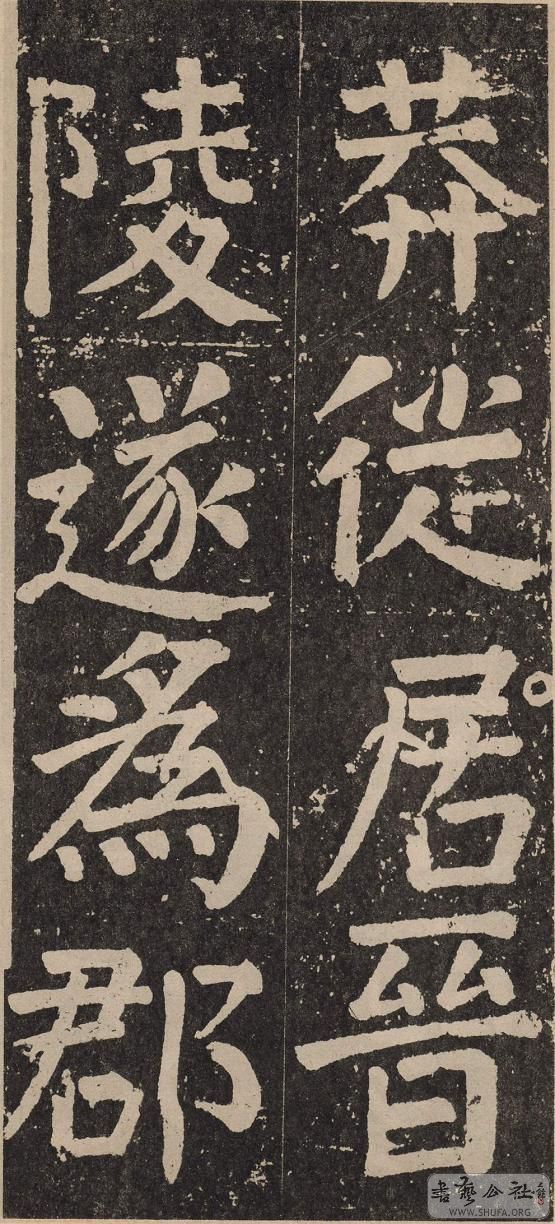 莽從居晉
陵遂為郡
書藝公社
WWW.SHUFA.ORG